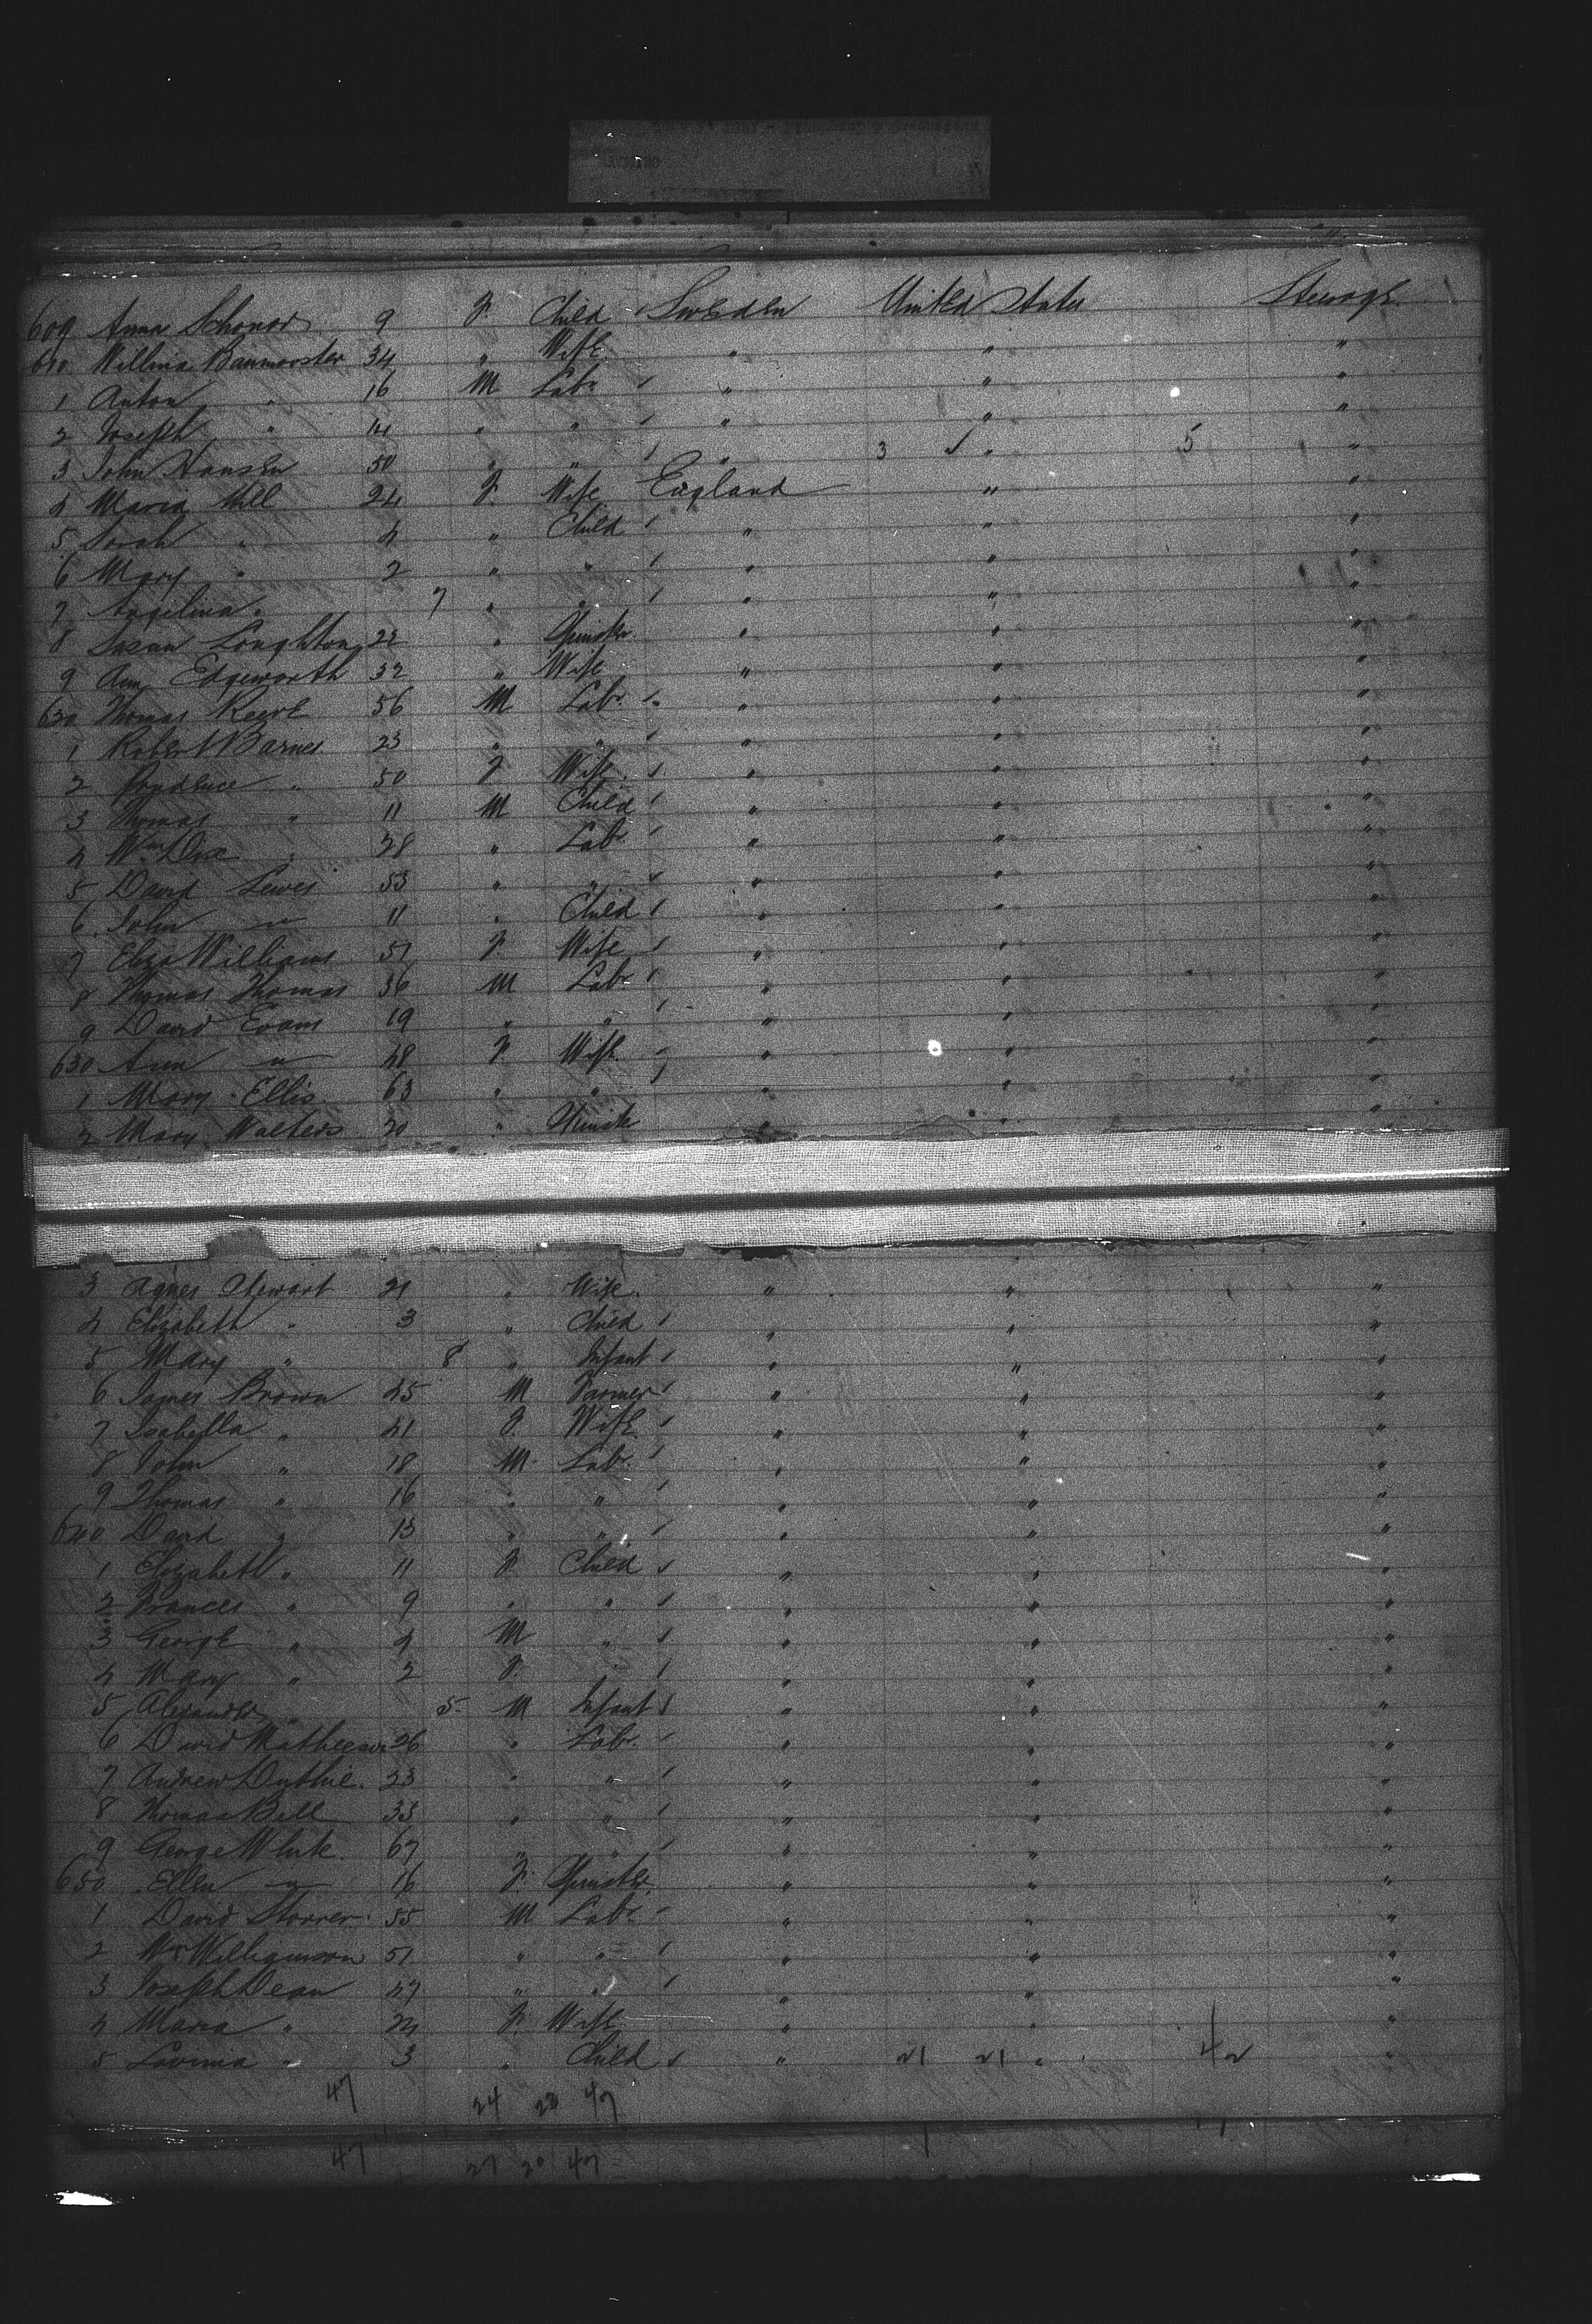 609 Anna Schonor 9 F. Child Sweden United States Steerage
610 Willina Banmorster 34 " Wife " " "
1 Anton " 16 M Labr " " "
2 Joseph " 14 " " " " "
3 John Hansen 50 " " " 3 " 5 "
4 Maria Hill 24 F. Wife England " "
5 Sarah " 4 " Child " " "
6 Mary " 2 " " " " "
7 Angelina " 7 " " " " "
8 Susan Loughton 22 " Spinster " " "
9 Ann Edgeworth 32 " Wife " " "
620 Thomas Reeve 56 M Labr " " "
1 Robert Barnes 23 " " " " "
2 Prudence " 50 F Wife " " "
3 Thomas " 11 M Child " " "
4 Wm Dix 28 " Labr " " "
5 David Lewis 53 " " " " "
6 John " 11 " Child " " "
7 Eliza Williams 51 F. Wife " " "
8 Thomas Thomas 36 M Labr " " "
9 David Evans 19 " " " " "
630 Ann " 48 F Wife " " "
1 Mary Ellis 63 " " " " "
2 Mary Walters 20 " Spinster " " "
3 Agnes Stewart 21 " Wife " " "
4 Elizabeth " 3 " Child " " "
5 Mary " 8 " Infant " " "
6 James Brown 45 M Farmer " " "
7 Isabella " 41 F. Wife " " "
8 John " 18 M Labr " " "
9 Thomas " 16 " " " " "
640 David " 13 " " " " "
1 Elizabeth " 11 F. Child " " "
2 Frances " 9 " " " " "
3 George " 4 M " " " "
4 Mary " 2 F. " " " "
5 Alexander " 5 M Infant " " "
6 David Matheson 26 " Labr " " "
7 Andrew Duthie 23 " " " " "
8 Thomas Bell 33 " " " " "
9 George White 67 " " " " "
650 Ellen " 16 F. Spinster " " "
1 David Storrer 55 M Labr " " "
2 Wm Williamson 51 " " " " "
3 Joseph Dean 47 " " " " "
4 Maria " 24 F. Wife " " "
5 Lavinia " 3 " Child " 21 21 " 42 "
47 24 23 47
47 27 20 47